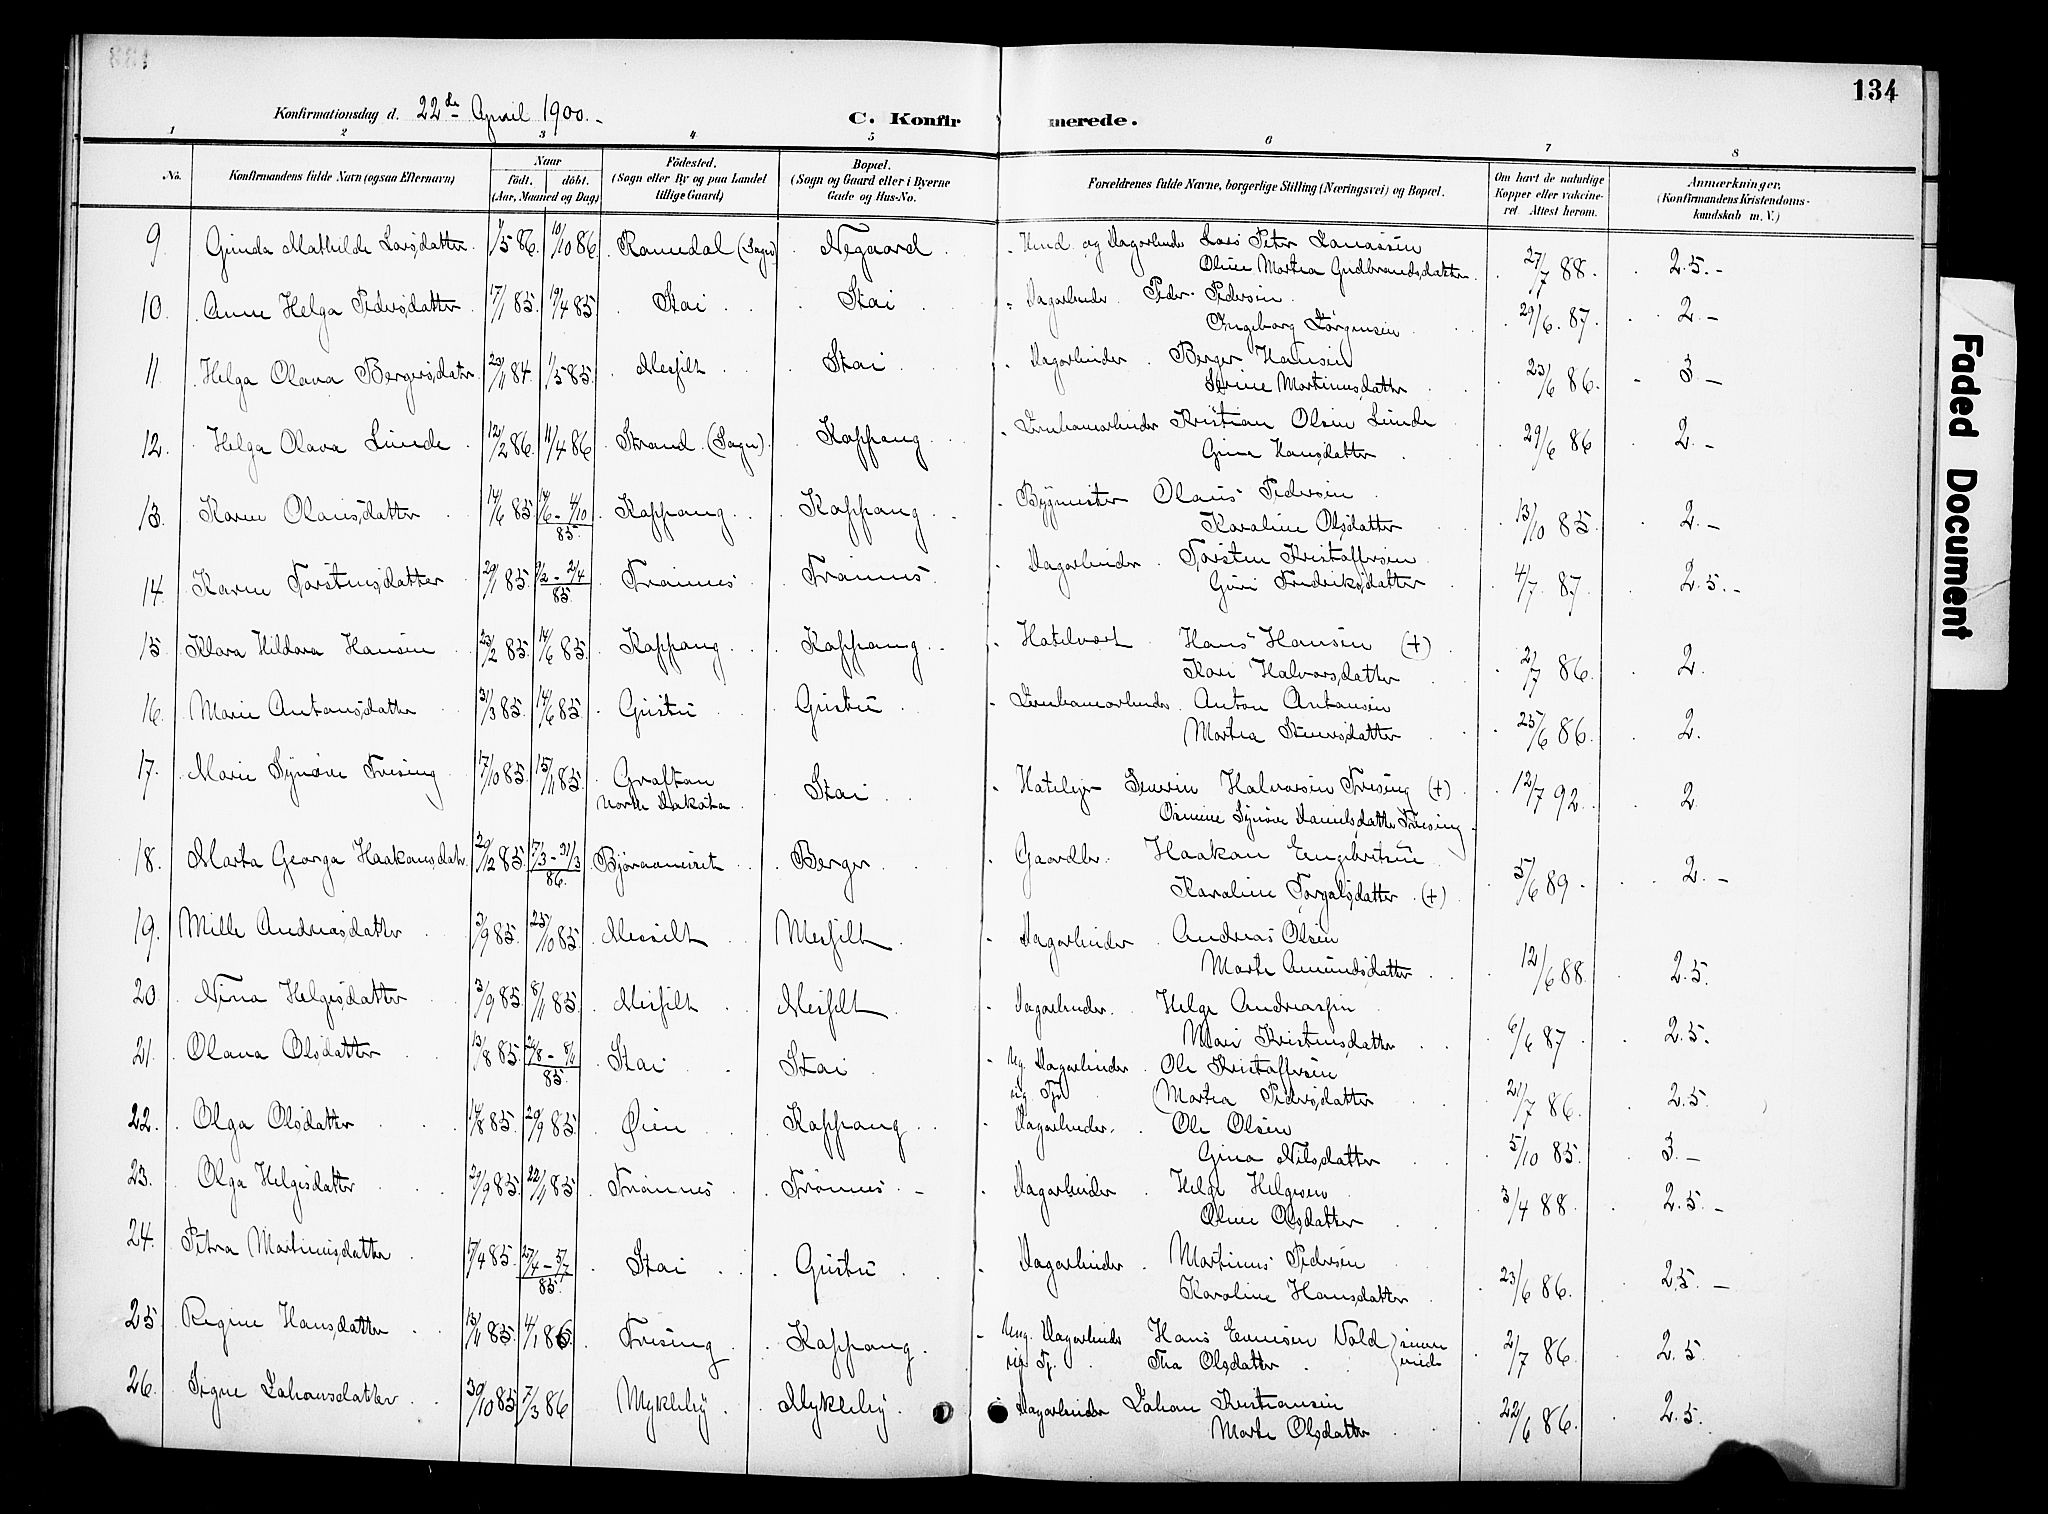 134
Konfirmationsdag d. 22de April 1900.-
C. Konfirmerede.
1 2 3 4 5 6 7 8
No. Konfirmandens fulde Navn (ogsaa Efternavn) Naar födt. döbt. (Aar, Maaned og Dag) Födested. (Sogn eller By og paa Landet tillige Gaard) Bopæl. (Sogn og Gaard eller i Byerne Gade og Hus-No. Forældrenes fulde Navne, borgerlige Stilling (Næringsvei) og Bopæl. Om havt de naturlige Kopper eller vakcineret Attest herom. Anmærkninger. (Konfirmandens Kristendomskundskab m. V.)
9 Gunda Mathilde Larsdatter 1/5 86. 10/10 86 Romedal (Sogn) Negaard og Dagarbeider Lars Peter Jonassen 27/7 88. 2.5.-
Oline Martea Gudbrandsdatter
10. Anne Helga Pedersdatter 17/1 85. 19/4 85 Stai Stai Dagarbeider Peder Pedersen 29/6. 87. 2.-
Ingeborg Jörgensen
11. Helga Olava Bergersdatr. 23/11 84. 1/5 85. Messelt Stai Dagarbeider Berger Hansen 23/6 86. 3-
Serine Martinusdatter
12. Helga Olava Lunde 12/2 86. 11/4 86 Strand (Sogn) Koppang Jernbanearbeider Kristian Olsen Lunde 29/6 86 2.-
Gina Hansdatter
13. Karen Olausdatter 14/6 85 14/6 - 4/10 85. Koppang Koppang Bygmester Olaus Pedersen 13/10 85. 2.-
Karoline Olsdatter
14. Karen Torstensdatter 29/1 85. 9/2 - 2/4 85 Trönnes Trönnes Dagarbeider Torsten Kristoffersen 4/7 87. 2.5.-
Guri Fredriksdatter
15. Klara Hildora Hansen 23/2 85. 14/6 85. Koppang Koppang Hotelvært Hans Hansen (+) 2/7 86. 2.
Kari Halvorsdatter
16. Marie Antonsdatter 31/3 85. 14/6 85. Gustu Gustu Jernbanearbeider Anton Antonsen 25/6 86. 2.
Martea Stenersdatter
17. Marie Synöve Trösing 17/10 85. 15/11 85. Grafton North Dakota Stai Hoteleier Severin Halvorsen Trösing (+) 12/7 92. 2
Synöve Danielsdatter Trösing
18. Marta Georga Haakonsdatr. 29/12 85. 17/3 - 31/3 86. Björaaneset Berger Gaardbr. Haakon Engebretsen 5/6 89. 2.-
Karoline Torgalsdatter (+)
19. Mille Andreasdatter 3/9 85. 25/10 85. Messelt Messelt Dagarbeider Andreas Olsen 12/6 88. 2.5.
Marte Amundsdatter
20 Nina Helgesdatter 3/9 85. 8/11 85. Messelt Messelt Dagarbeider Helge Andreassen 6/6 87 2.5.
Mari Kristensdatter
21. Olava Olsdatter 13/8 85. 85. Stai Stai Ug. Dagarbeider Ole Kristoffersen 21/7 86. 2.5.
Martea Pedersdatter
22. Olga Olsdatter 14/8 85. 20/9 85. Öien Koppang Dagarbeider Ole Olsen 5/10 85. 3.-
Gina Nilsdatter
23. Olga Helgesdatter 29/9 85. 22/11 85 Trönnes Trönnes Dagarbeider Helge Helgesen 3/4 88. 2.5.-
Oline Olsdatter
24. Petra Martinusdatter 17/4 85. 27/4 - 5/7 85. Stai Gustu Dagarbeider Martinus Pedersen 23/6 86. 2.5.-
Karoline Hansdatter
25 Regine Hansdatter 13/11 85. 4/1 86. Trösing Koppang Ung. Dagarbeider Hans Evensen Vold 2/7 86. 2.5.
Tea Olsdatter
26. Signe Johansdatter 30/10 85. 7/3 86 Mykleby Mykleby Dagarbeider Johan Kristiansen 22/6 86. 2.5.
Marte Olsdatter
Faded Document